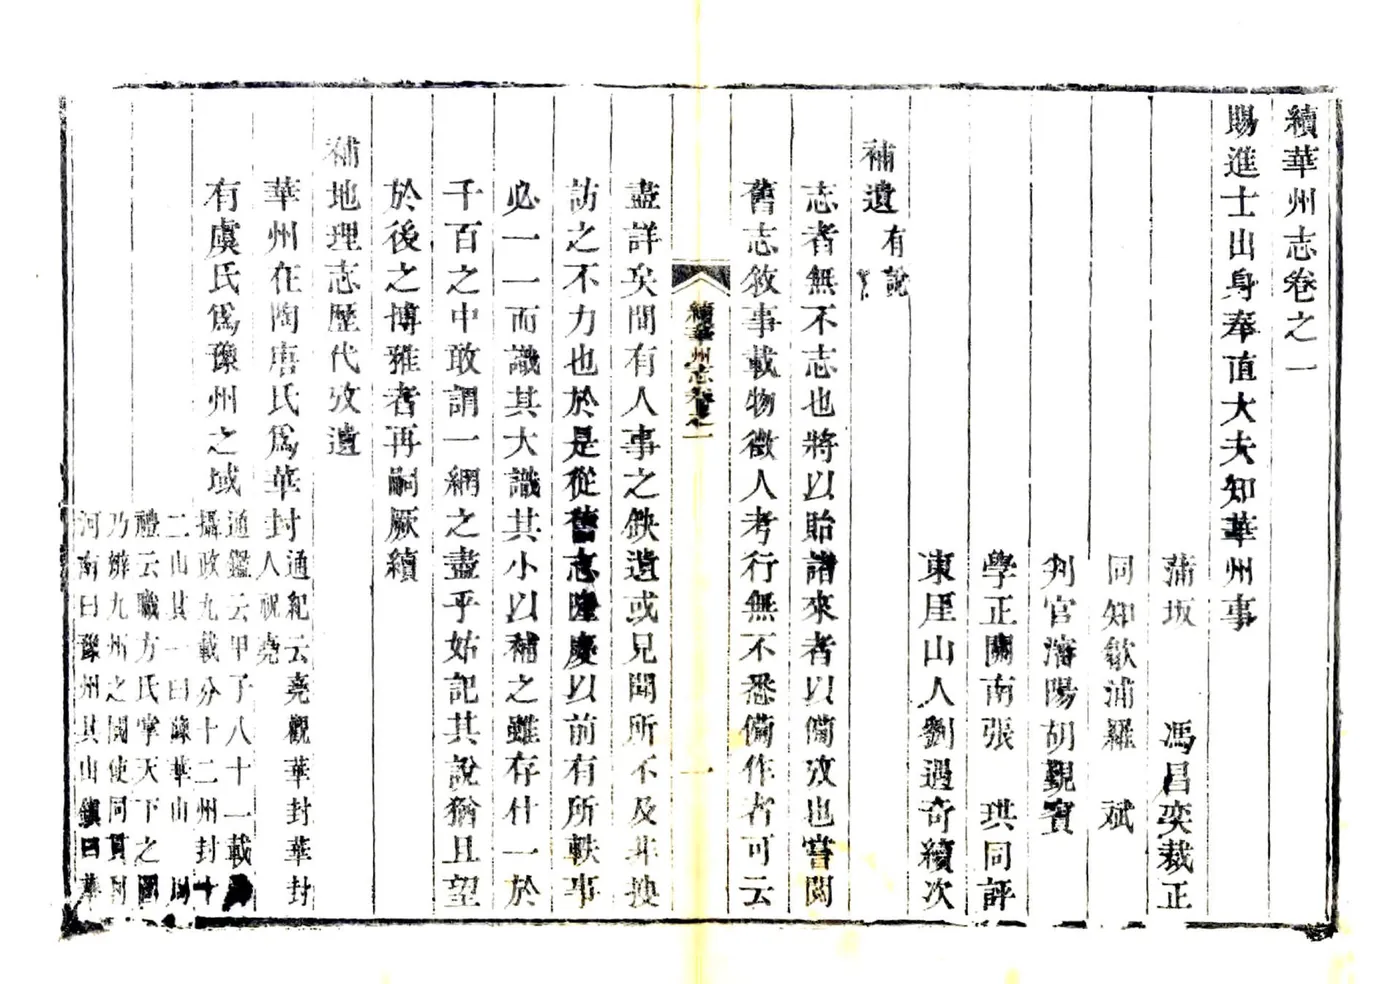 續華州志卷之一
賜進士出身奉直大夫知華州事
蒲坂　馮昌奕裁正
同知歙浦羅　斌
判官瀋陽胡覲賓
學正關南張　珙同評
東厓山人劉遇奇續次
補遺有說
志者無不志也將以貽諸來者以備攷也嘗閱
舊志敘事載物徵人考行無不悉備作者可云
續華州志卷之一
一
盡詳矣間有人事之缺遺或見聞所不及非按
訪之不力也於是從舊志隆慶以前有所軼事
必一一而識其大識其小以補之雖存什一於
千百之中敢謂一網之盡乎姑記其說猶且望
於後之博雅者再嗣厥續
補地理志歷代攷遺
華州在陶唐氏爲華封
通紀云堯觀華封華封
人祝堯
有虞氏爲豫州之域
通鑑云甲子八十一載
攝政九載分十二州封十
二山其一曰豫華山周
禮云職方氏掌天下之圖
乃辨九州之國使同貫利
河南曰豫州其山鎮曰華